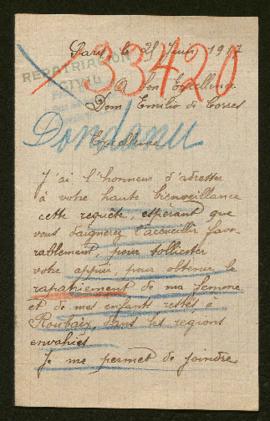 Paris, le 25 Juin 1917
33420
REPATRIATION
A Son Excellence
Dom Emilio de Torres
Dondanu
Excellence
J'ai l'honneur d'adresser
à votre haute bienveillance
cette requête, espérant que
vous daignerez l'accueillir favo-
rablement, pour solliciter
votre appui pour obtenir le
rapatriement de ma femme
et de mes enfants restés à
Roubaix, dans les régions
envahies
Je me permet de joindre